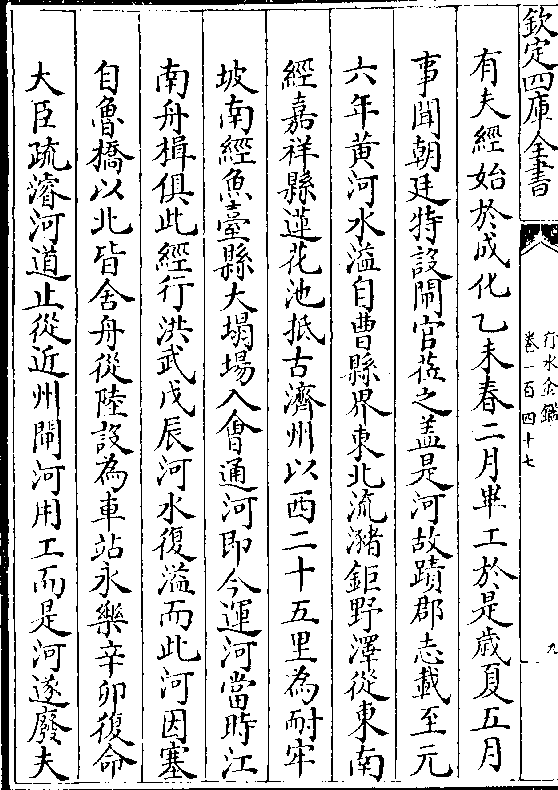 欽定四庫全書
行水金鑑
卷一百四十七
九
有夫經始於成化乙未春二月畢工於是歲夏五月
事聞朝廷特設閘官蒞之蓋是河故蹟郡志載至元
六年黃河水溢自曹縣界東北流瀦鉅野澤從東南
經嘉祥縣蓮花池抵古濟州以西二十五里為耐牢
坡南經魚臺縣大塌場入會通河即今運河當時江
南舟楫俱此經行洪武戊辰河水復溢而此河因塞
自魯橋以北皆舍舟從陸設為車站永樂辛卯復命
大臣疏濬河道止從近州閘河用工而是河遂廢夫